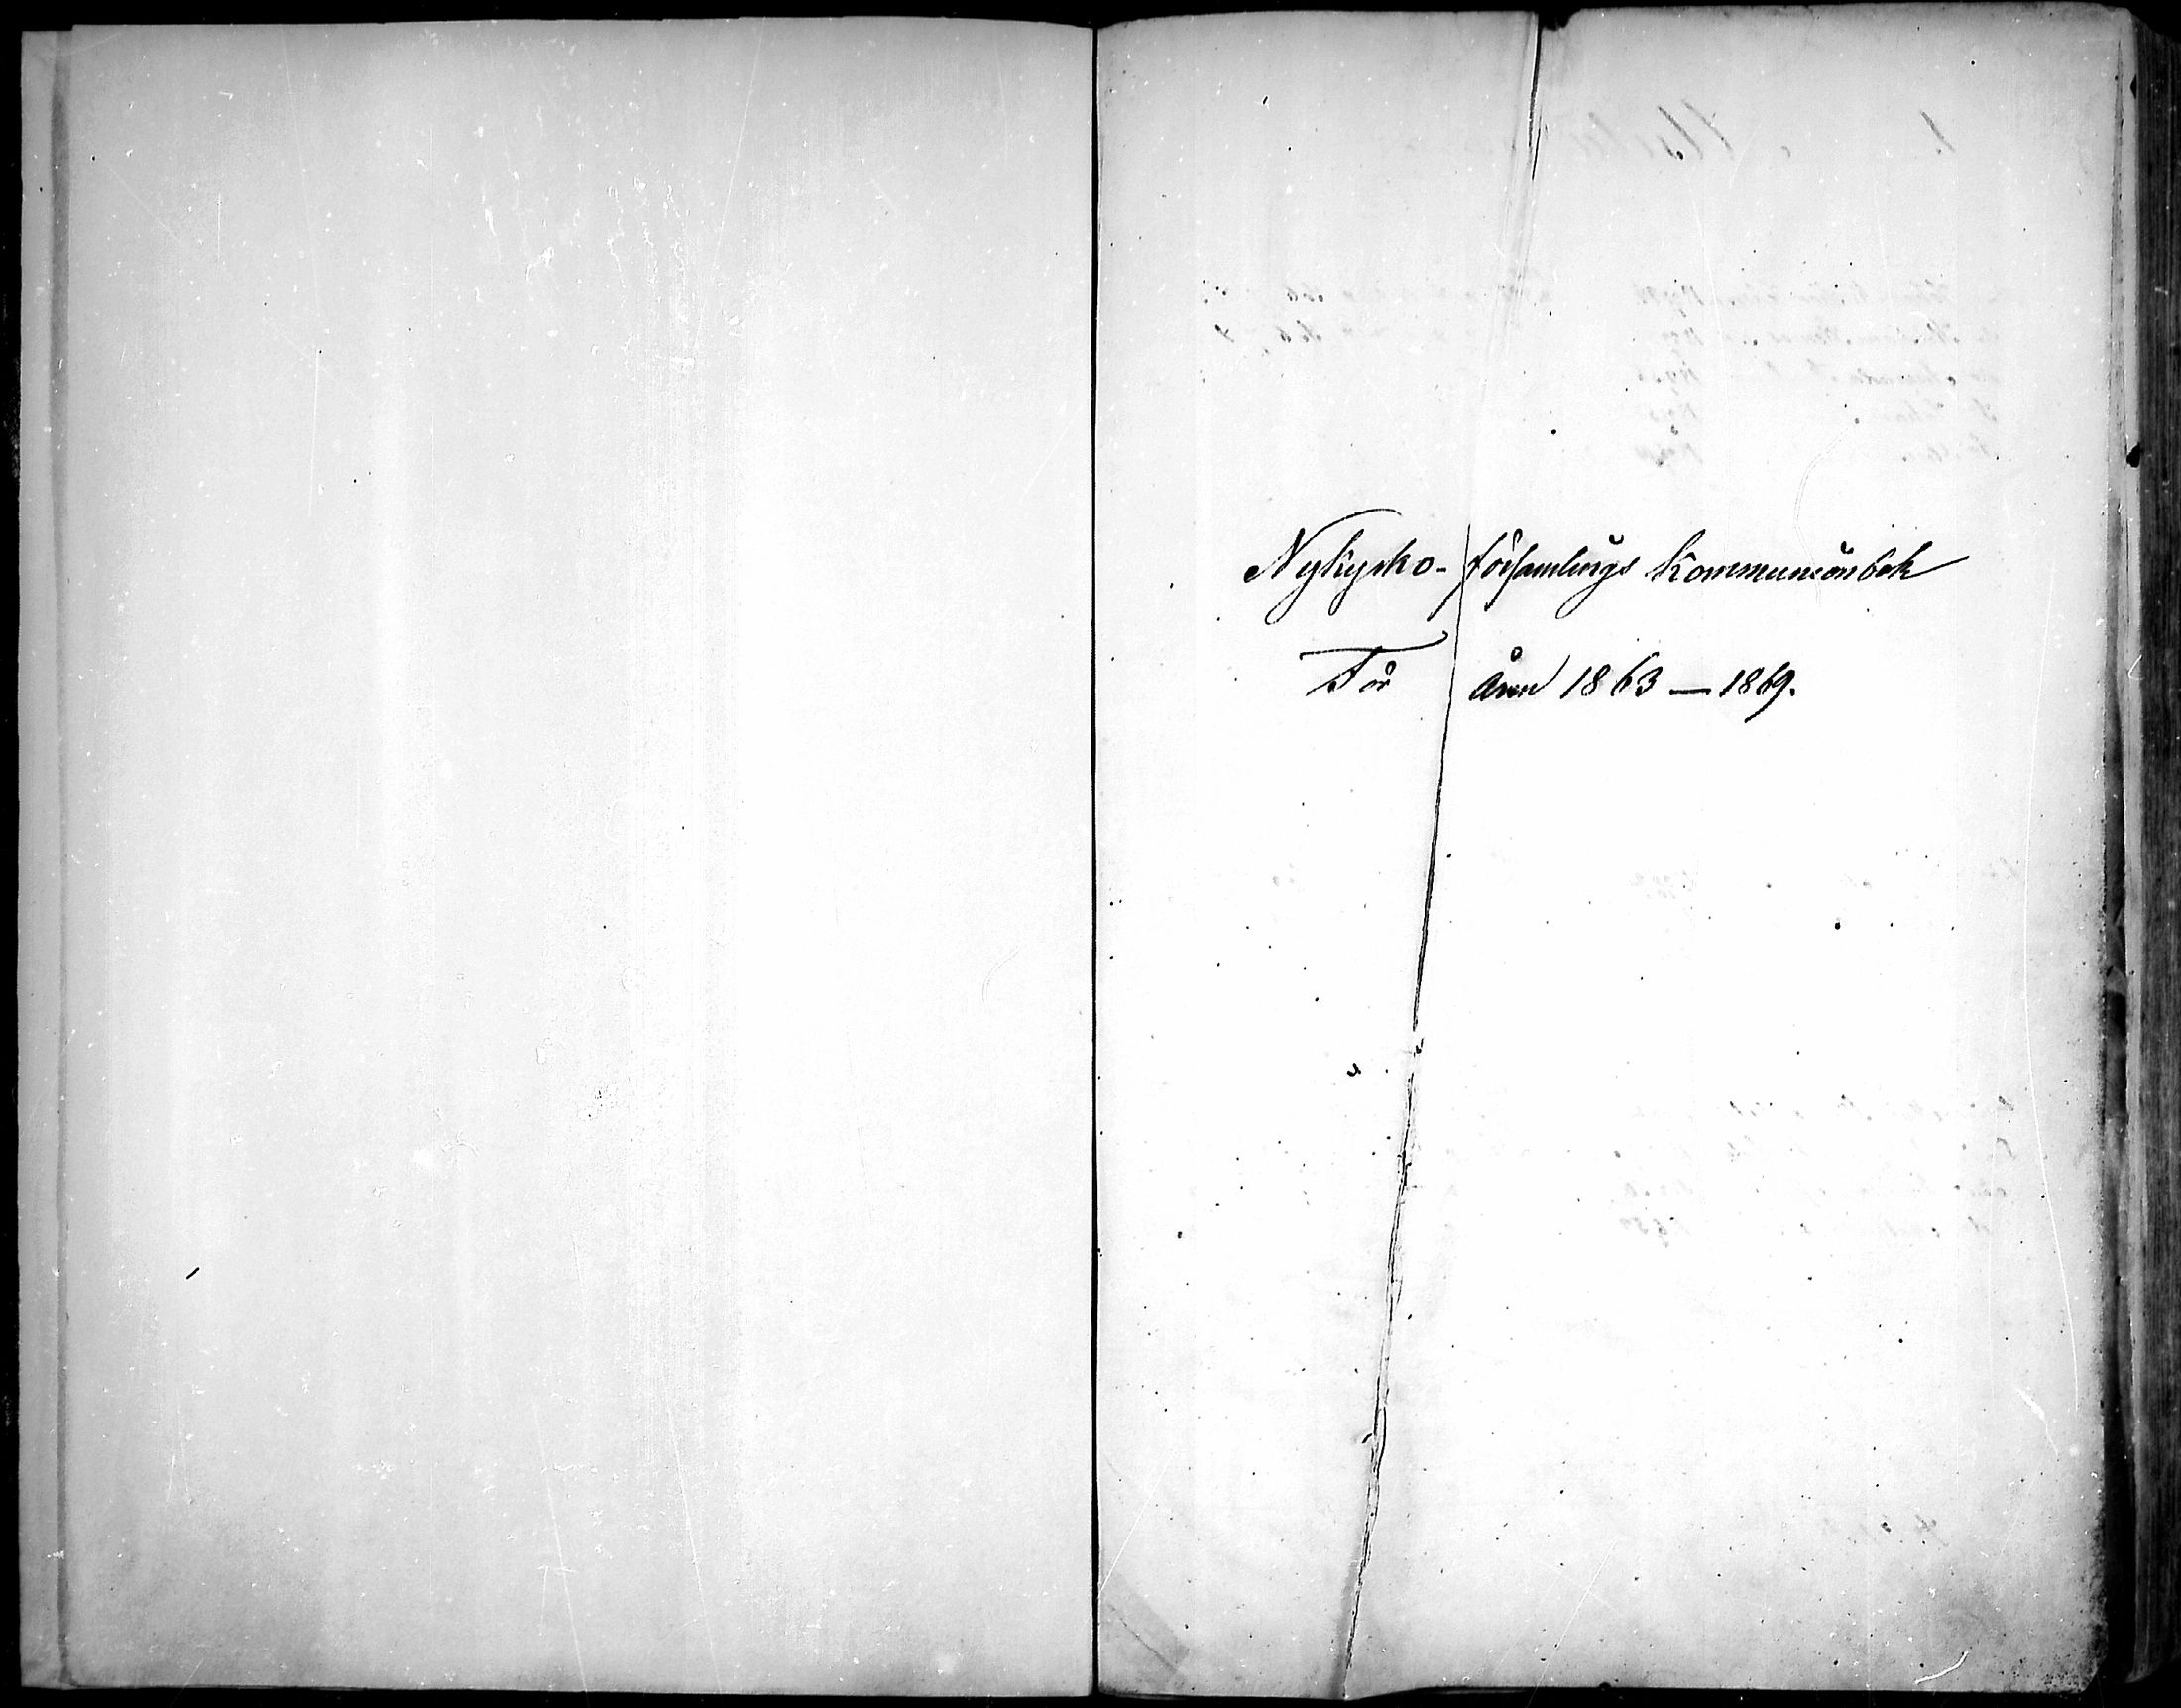 Nykyrko- församlings Kommunionbok
För Åren 1863 — 1869.